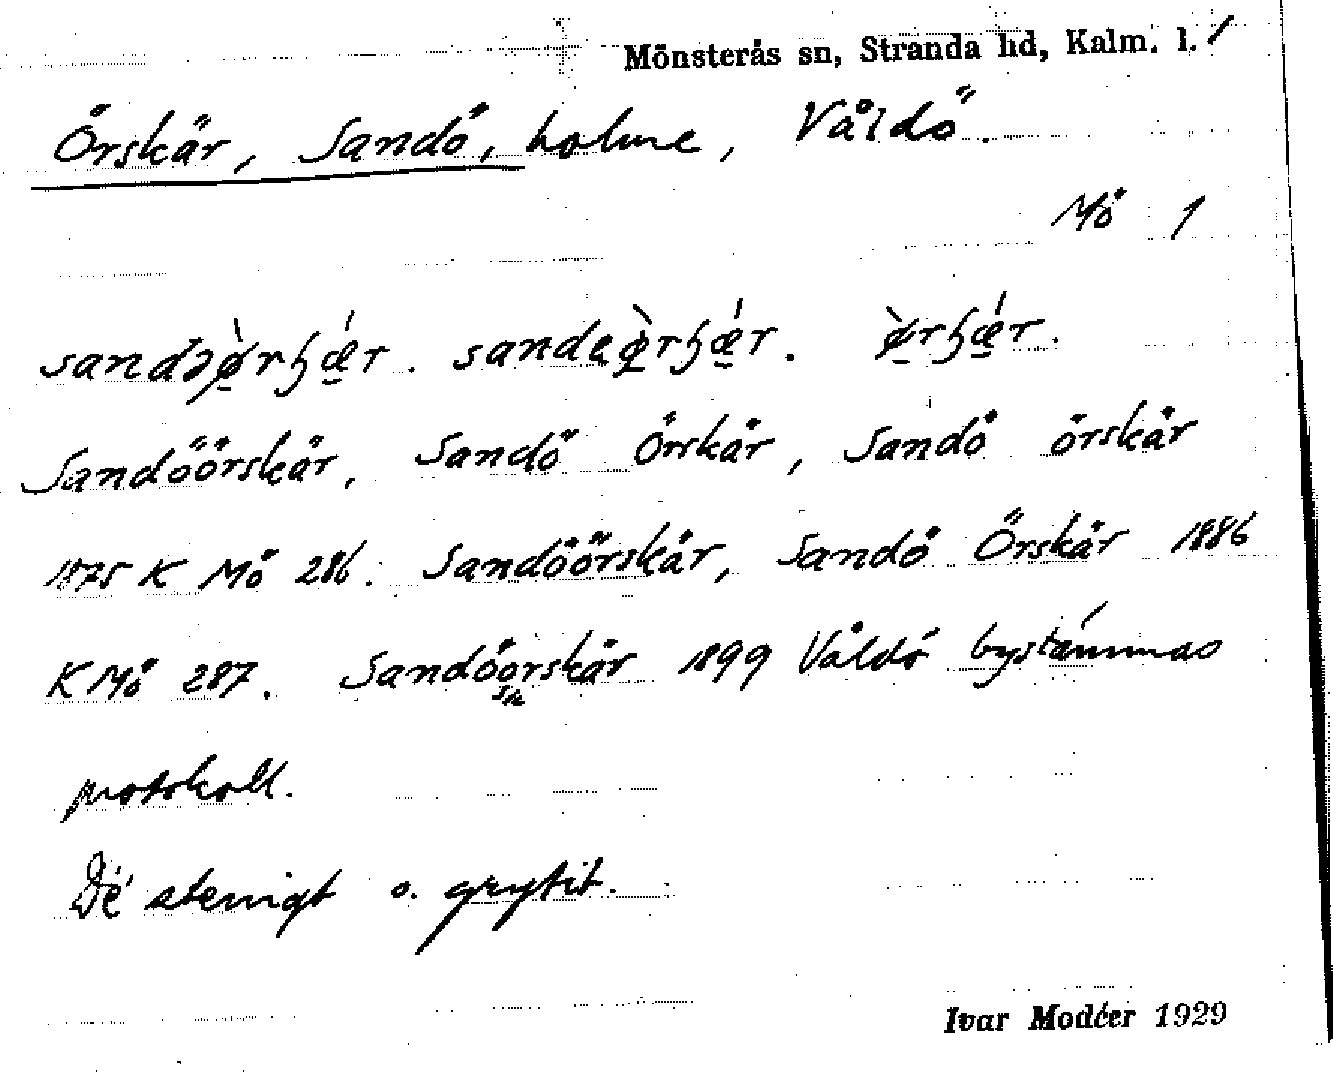 Mönsterås sn, Stranda hd, Kalm. l. 1
Örskär, Sandö, holme, Våldö.
Mö 1
sandɔø̀rʃǽr. sandeø̀rʃǽr. ø̀rʃǽr.
Sandöörskär, Sandö Örskär, Sandö örskär
1875 K Mö 286. Sandöörskär, Sandö Örskär 1886
K Mö 287. Sandöorskär 1899 Våldö bystämmas
protokoll.
Dé stenigt o. grytit.
Ivar Modéer 1929